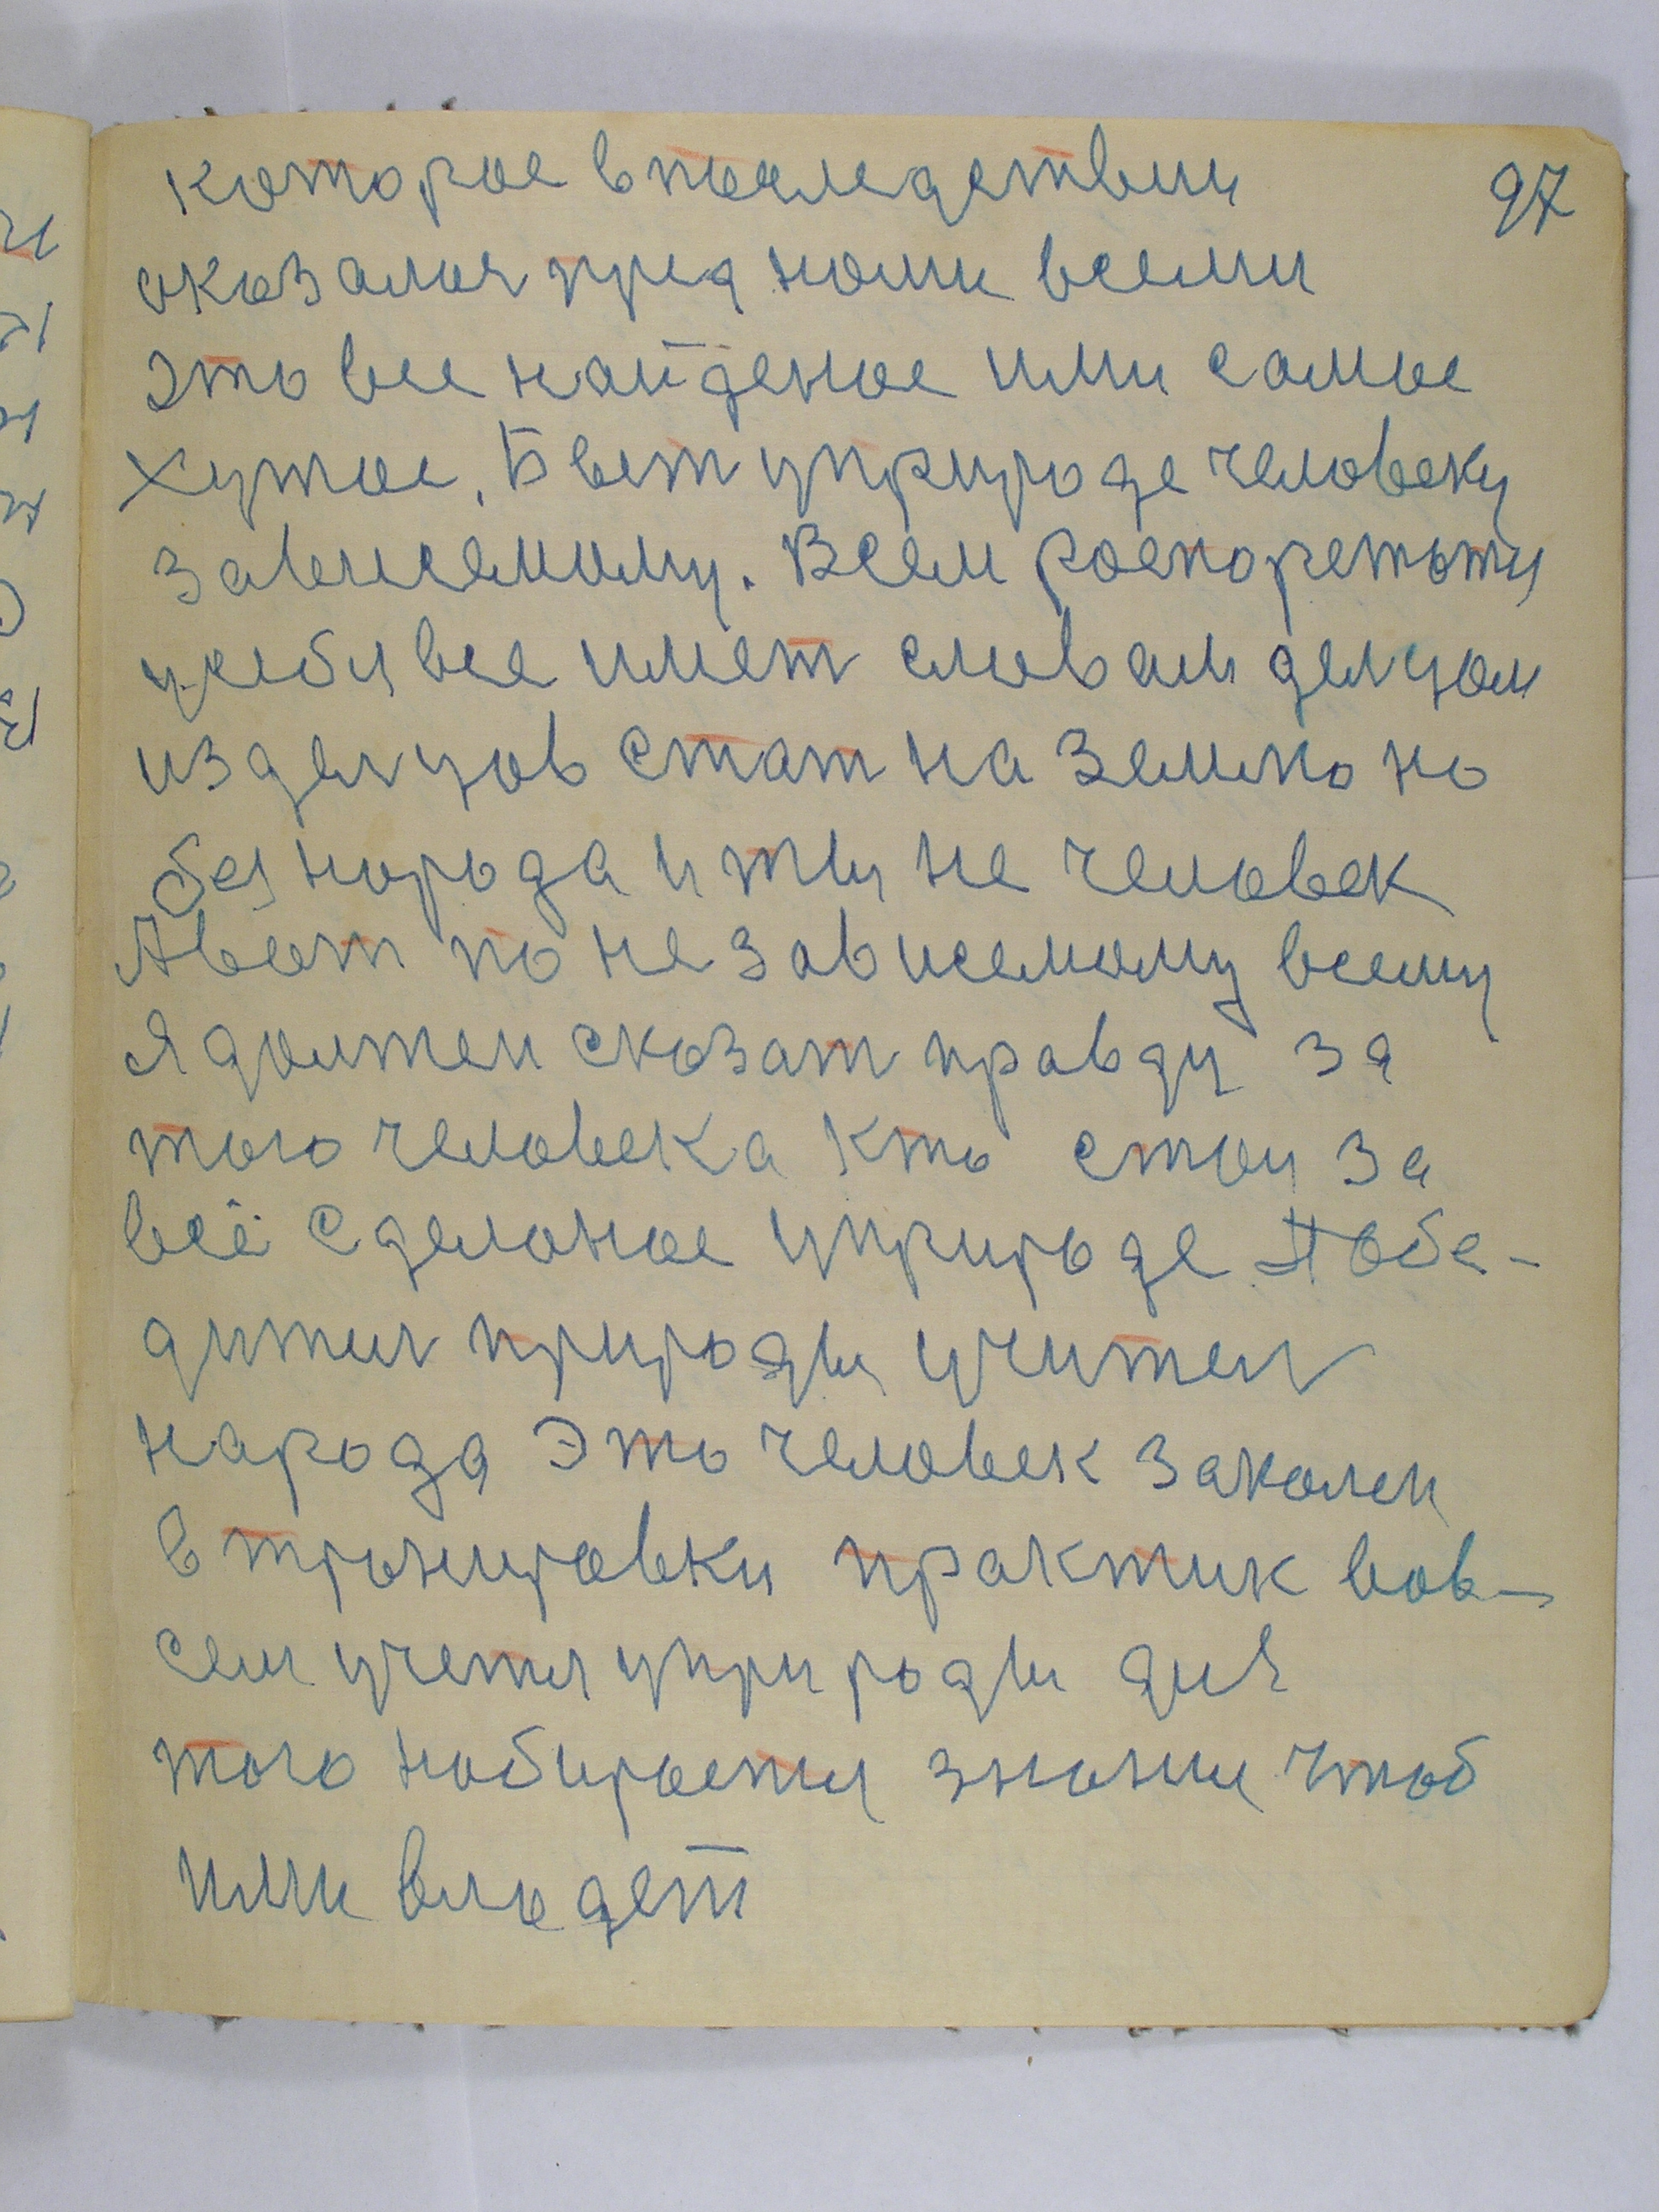 97
которое впаследствии
оказалося пред нами всеми
это все найденое ими самое
хутое. Бьет уприроде человеку
зависемому. Всем распоретьти
усебя все имет словам делцом
из делцов стат на Землю но
без народа и ты не человек
А вот по не зависемому всему
я должен сказат правду за
того человека кто стои за
всё сделаное уприроде Побе-
дител природы учител
народа Это человек закален
в тренировки практик вов-
сем учетя уприроды для
того набираетя знании чтоб
ими владет